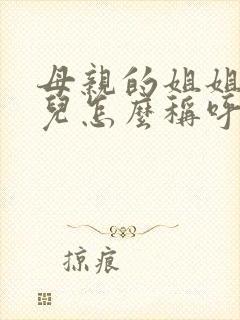 母親的姐姐
兒怎麼稱呼
掠痕